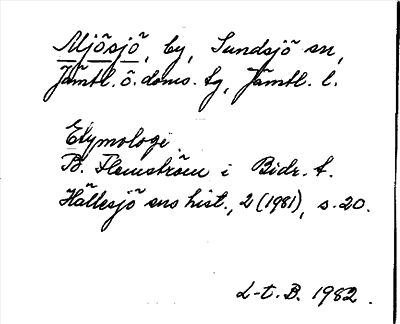 Mjösjö, by, Sundsjö sn,
Jämtl. ö. doms. tg, Jämtl. l.
Etymologi
B. Flemström i Bidr. t.
Hällesjö sns hist., 2 (1981), s. 20.
L-t. B. 1982.